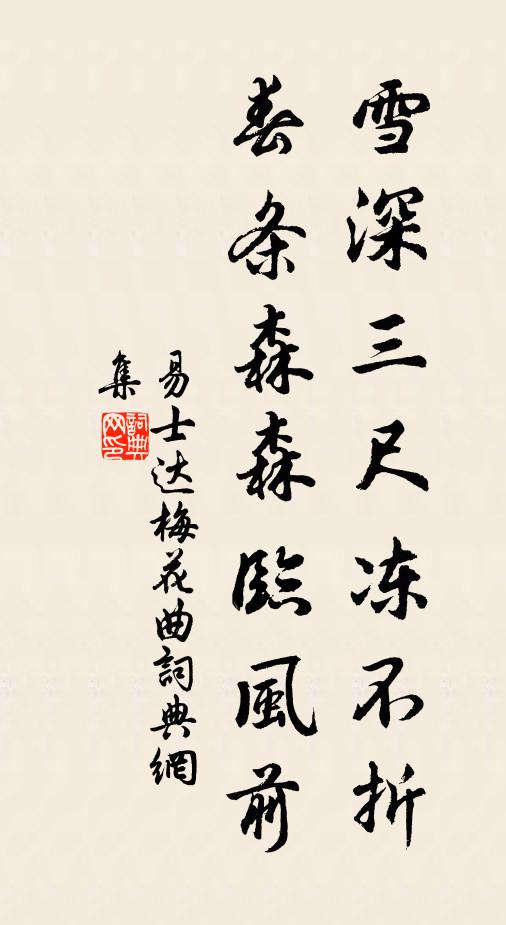 雪深三尺冻不折
春条森森臨風前
易士达梅花曲詞典網
集
詞典网印